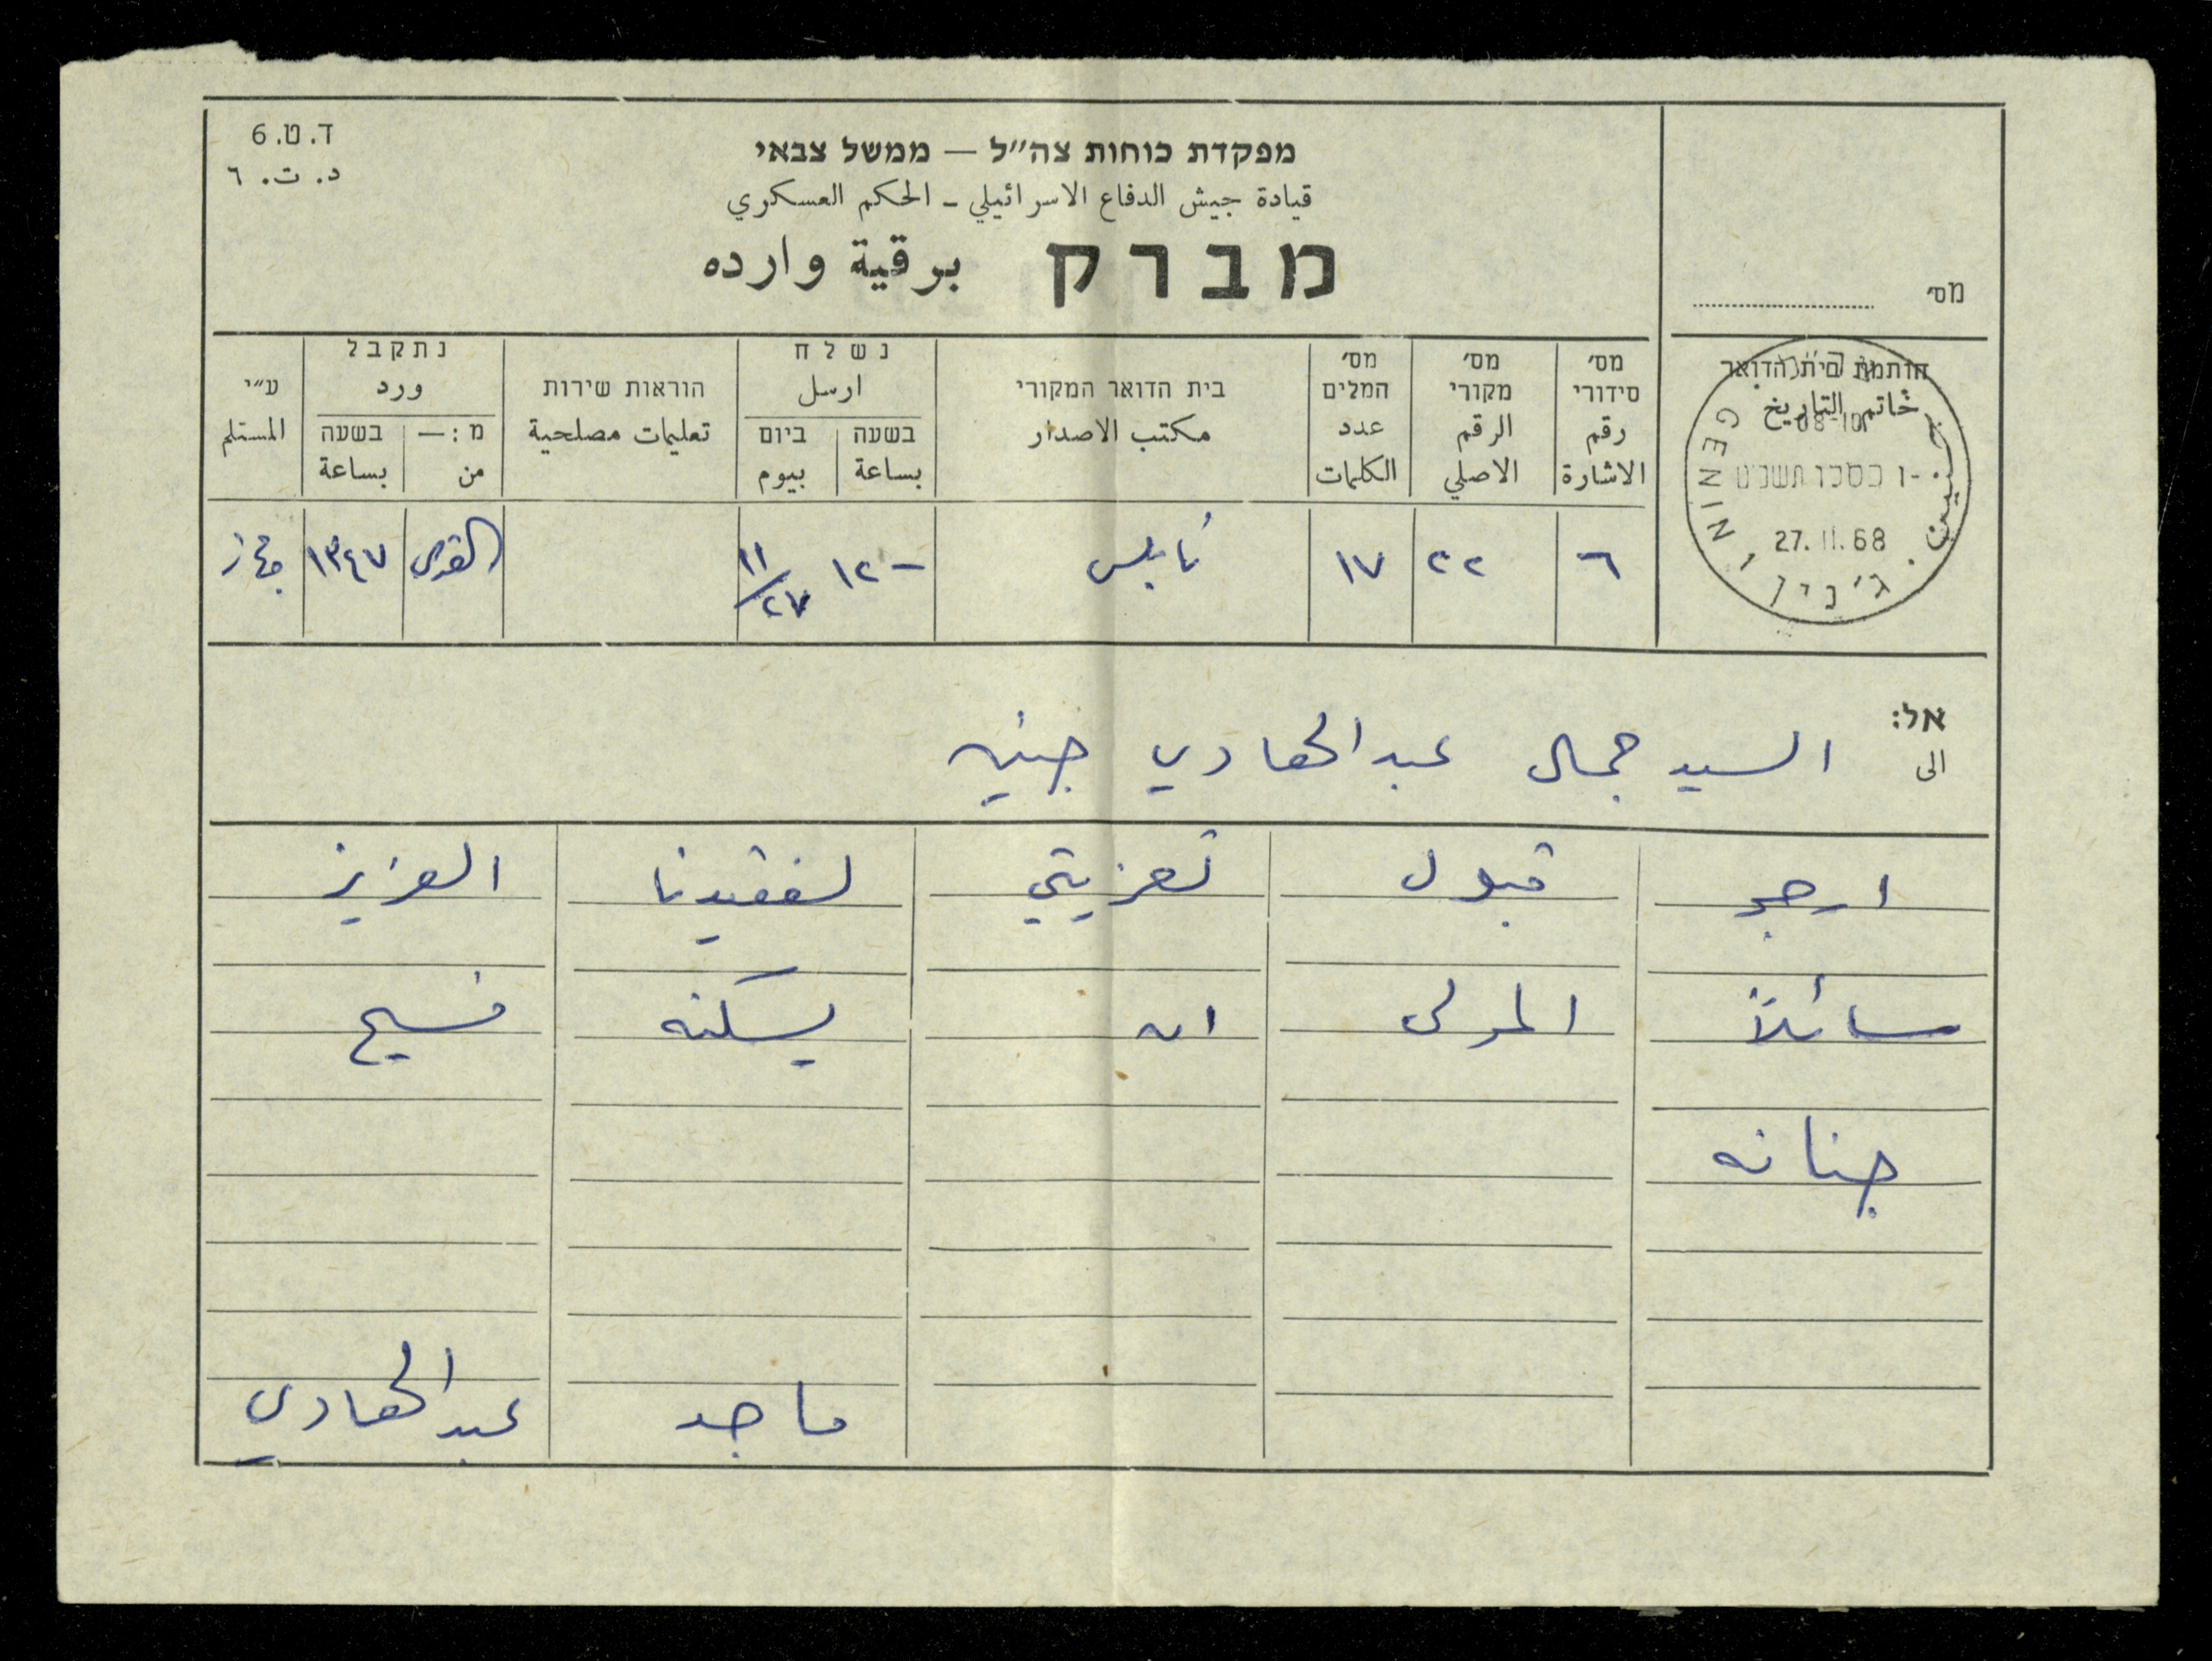 ד.ט.6
د. ت. ٦
מפקדת כוחות צה״ל — ממשל צבאי
قيادة جيش الدفاع الاسرائيلي - الحكم العسكري
מברק برقية وارده
מס׳
חותמת בית הדואר
خاتم التاريخ
08-10
27.11.68
GENIN جنين ג׳נין
מס׳ סידורי رقم الاشارة
מס׳ מקורי الرقم الاصلي
מס׳ המלים عدد الكلمات
בית הדואר המקורי مكتب الاصدار
נשלח ارسل
בשעה بساعة
ביום بيوم
הוראות שירות تعليمات مصلحية
נתקבל ورد
מ:— من
בשעה بساعة
ע״י المستلم
٦ ٢٢ ١٧ نابلس ١٢- ١١/٢٧ القدس ١٣٤٧
אל:
الى السيد جمال عبد الهادي جنين
ارجو قبول تعزيتي لفقيدنا العزيز
سائلاً المولى ان يسكنه فسيح
جنانه
ماجد عبد الهادي